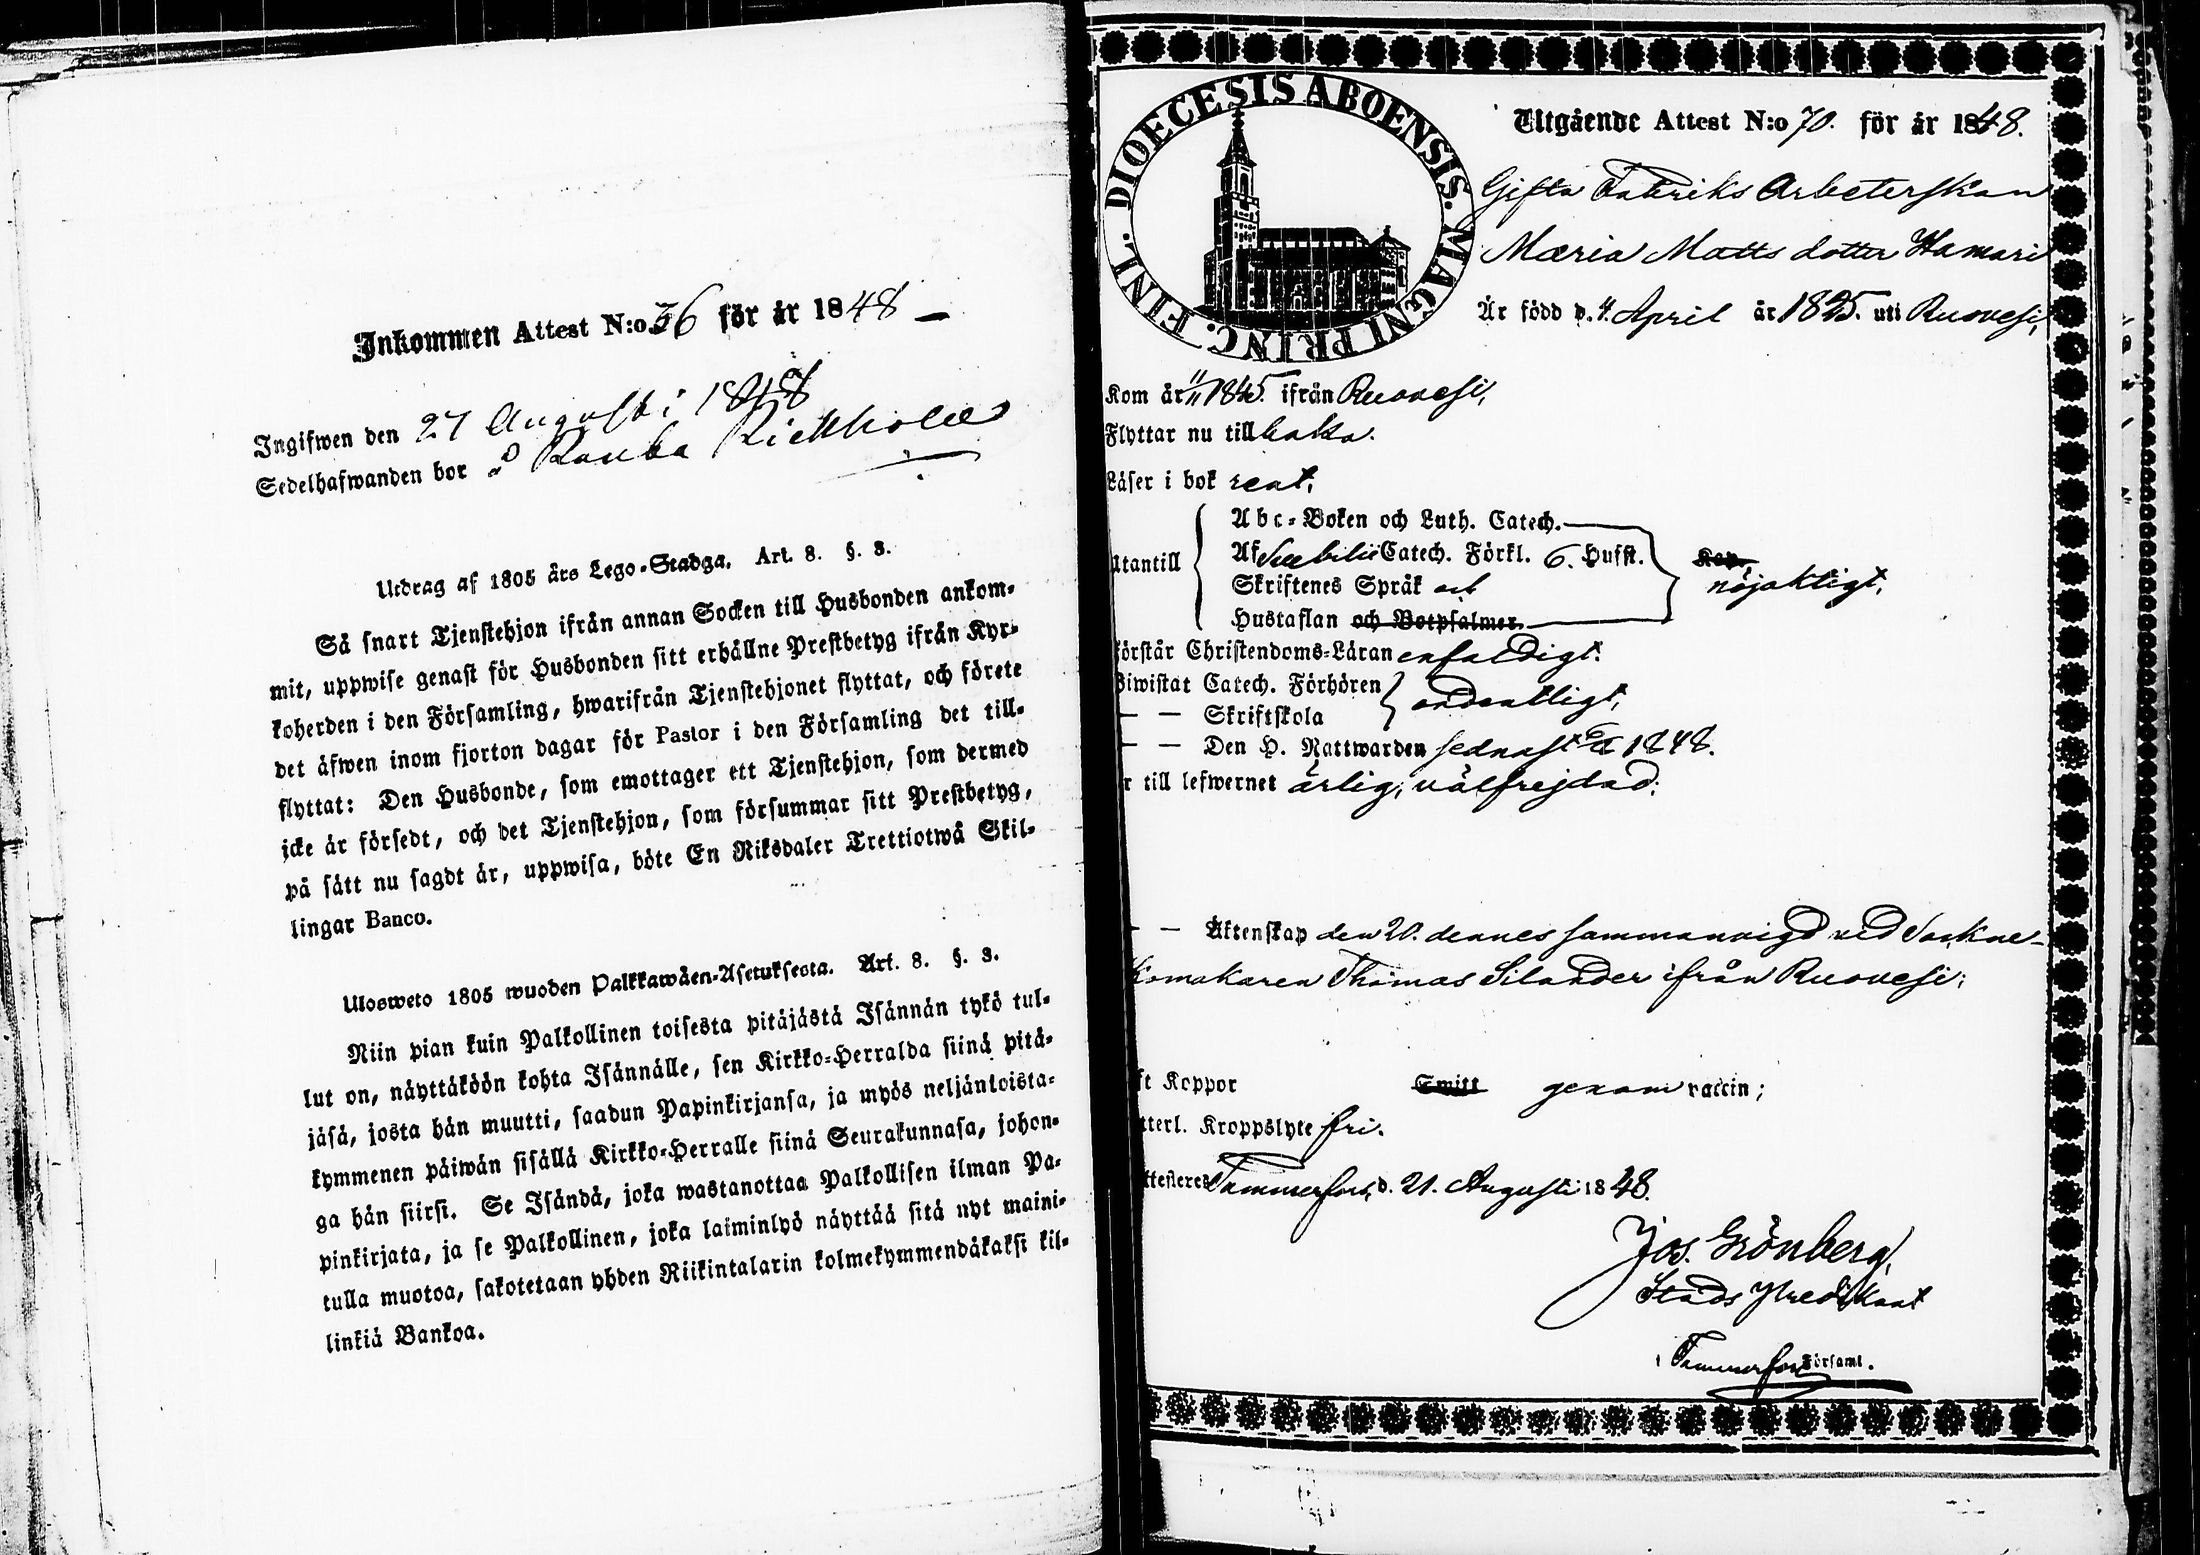 Inkommen Attest N:o 56 för år 1848
Ingifwen den 27 Augusti 1848
Sedelhafwanden bor å
Utdrag af 1805 års Lego-Stadga. Art. 8. §. 3.
Så snart Tjenstehjon ifrån annan Socken till Husbonden ankom-
mit, uppwise genast för Husbonden sitt erhållne Prestbetyg ifrån Kyr-
koherden i den Församling, hwarifrån Tjenstehjonet flyttat, och förete
det äfwen inom fjorton dagar för Pastor i den Församling det till-
flyttat: Den Husbonde, som emottager ett Tjenstehjon, som dermed
icke är försedt, och det Tjenstehjon, som försummar sitt Prestbetyg,
på sätt nu sagdt är, uppwisa, böte En Riksdaler Trettiotwå Skil-
lingar Banco.
Ulosweto 1805 wuoden Palkkawäen-Asetuksesta. Art. 8. §. 3.
Niin pian kuin Palkollinen toisesta pitäjästä Isännän tykö tul-
lut on, näyttäköön kohta Isännälle, sen Kirkko-Herralda siinä pitä-
jäsä, josta hän muutti, saadun Papinkirjansa, ja myös neljäntoista-
kymmenen päiwän sisällä Kirkko-Herralle siinä Seurakunnasa, johon-
ga hän siirsi. Se Isändä, joka wastanottaa Palkollisen ilman Pa-
pinkirjata, ja se Palkollinen, joka laiminlyö näyttää sitä nyt maini-
tulla muotoa, sakotetaan yhden Riikintalarin kolmekymmendäkaksi kil-
linkiä Bankoa.
DIOECESIS ABOENSIS. MAGNI PRINC. FINL.
Utgående Attest N:o 70. för år 1848.
Gifta Fabriks Arbeterskan
Maria Matts dotter Hamari
Är född d. 4. April år 1825. uti Ruovesi,
Kom år 1845. ifrån Ruovesi,
Flyttar nu tillbaka.
Läser i bok rent,
Utantill
Abc-Boken och Luth. Catech.
Af Svebilii Catech. Förkl. 6. Hufst.
Skriftenes Språk och
Hustaflan och Botpsalmer.
nöjaktigt,
Förstår Christendoms-Läran enfaldigt.
Biwistat Catech. Förhören
ordentligt,
— — Skriftskola
— — Den H. Nattwarden sednast 1848.
r till lefwernet ärlig, välfrejdad;
— — Äktenskap den 20. dennes sammanvigd med Sockne-
komakaren Thomas Silander ifrån Ruovesi;
ft Koppor Smitt genom vaccin;
tterl. Kroppslyte fri.
tteseres Tammerfors, d. 21. Augusti 1848.
Jos. Grönberg,
Stads Predikant
i Tammerfors Församl.